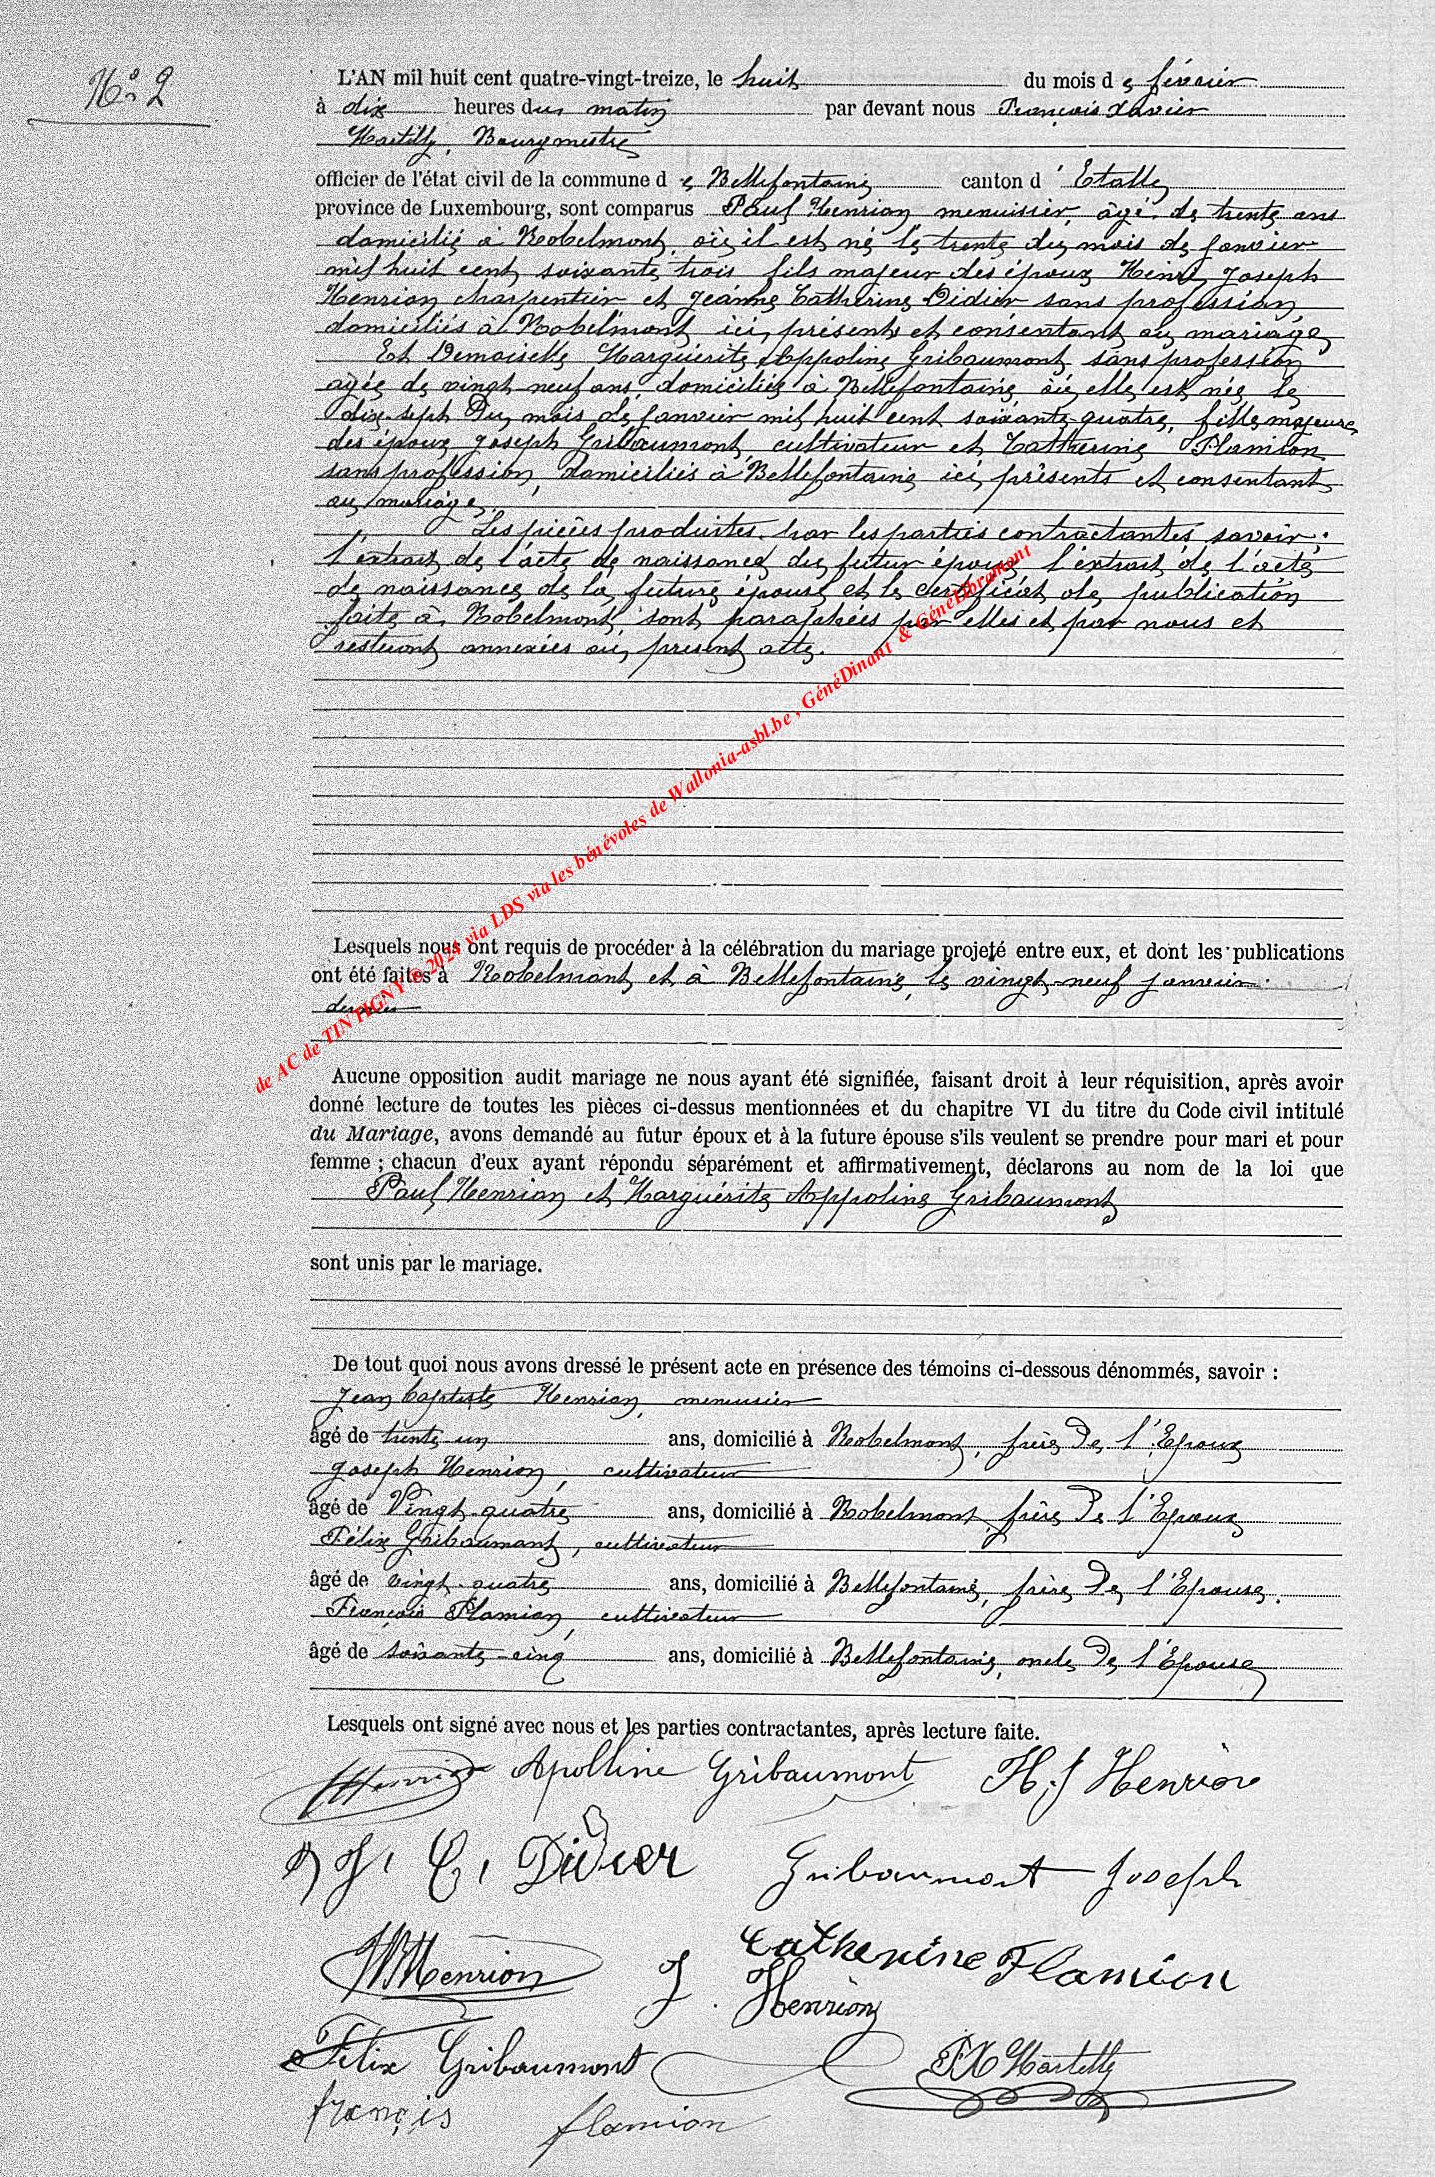 No 2
L'AN mil huit cent quatre-vingt-treize, le huit du mois de février
à dix heures du matin par devant nous François Xavier
Hartilly, Bourgmestre
officier de l'état civil de la commune de Bellefontaine canton d'Etalle
province de Luxembourg, sont comparus Paul Henrion menuisier, âgé de trente ans
domicilié à Robelmont, où il est né le trente du mois de janvier
mil huit cent soixante trois fils majeur des époux Henri Joseph
Henrion charpentier et Jeanne Catherine Didier sans profession
domiciliés à Robelmont ici présents et consentant au mariage
Et Demoiselle Marguérite Appoline Gribaumont, sans profession
agée de vingt-neuf ans, domiciliée à Bellefontaine, où elle est née le
dix-sept Du mois de janvier mil huit cent soixante quatre, fille majeure
des époux Joseph Gribaumont, cultivateur et Catherine Flamion
sans profession, domiciliés à Bellefontaine ici présents et consentant
au mariage.
Les pièces produites par les parties contractantes savoir:
l'extrait de l'acte de naissance du futur époux l'extrait de l'acte
de naissance de la future épouse et le certificat de publication
faite à Robelmont, sont paraphées par elles et par nous et
resteront annexées au présent acte.
Lesquels nous ont requis de procéder à la célébration du mariage projeté entre eux, et dont les publications
ont été faites à Robelmont et à Bellefontaine, le vingt-neuf janvier
dernier
Aucune opposition audit mariage ne nous ayant été signifiée, faisant droit à leur réquisition, après avoir
donné lecture de toutes les pièces ci-dessus mentionnées et du chapitre VI du titre du Code civil intitulé
du Mariage, avons demandé au futur époux et à la future épouse s'ils veulent se prendre pour mari et pour
femme ; chacun d'eux ayant répondu séparément et affirmativement, déclarons au nom de la loi que
Paul Henrion et Marguérite Appoline Gribaumont
sont unis par le mariage.
De tout quoi nous avons dressé le présent acte en présence des témoins ci-dessous dénommés, savoir :
Jean Baptiste Henrion, menuisier
âgé de trente-un ans, domicilié à Robelmont, frère De l'Epoux
Joseph Henrion, cultivateur
âgé de Vingt-quatre ans, domicilié à Robelmont, frère De l'Epoux
Félix Gribaumont, cultivateur
âgé de vingt-quatre ans, domicilié à Bellefontaine, frère De l'Epouse.
François Flamion, cultivateur
âgé de soixante-cinq ans, domicilié à Bellefontaine, oncle De l'Epouse
Lesquels ont signé avec nous et les parties contractantes, après lecture faite.
Henrion Apolline Gribaumont H. J Henrion
J. C. Didier Gribaumont Joseph
JB Henrion J. Henrion Catherine Flamion
Félix Gribaumont FX Hartilly
françois flamion
de AC de TINTIGNY © 2024 via LDS via les bénévoles de Wallonia-asbl.be , GénéDinant & GénéLibramont